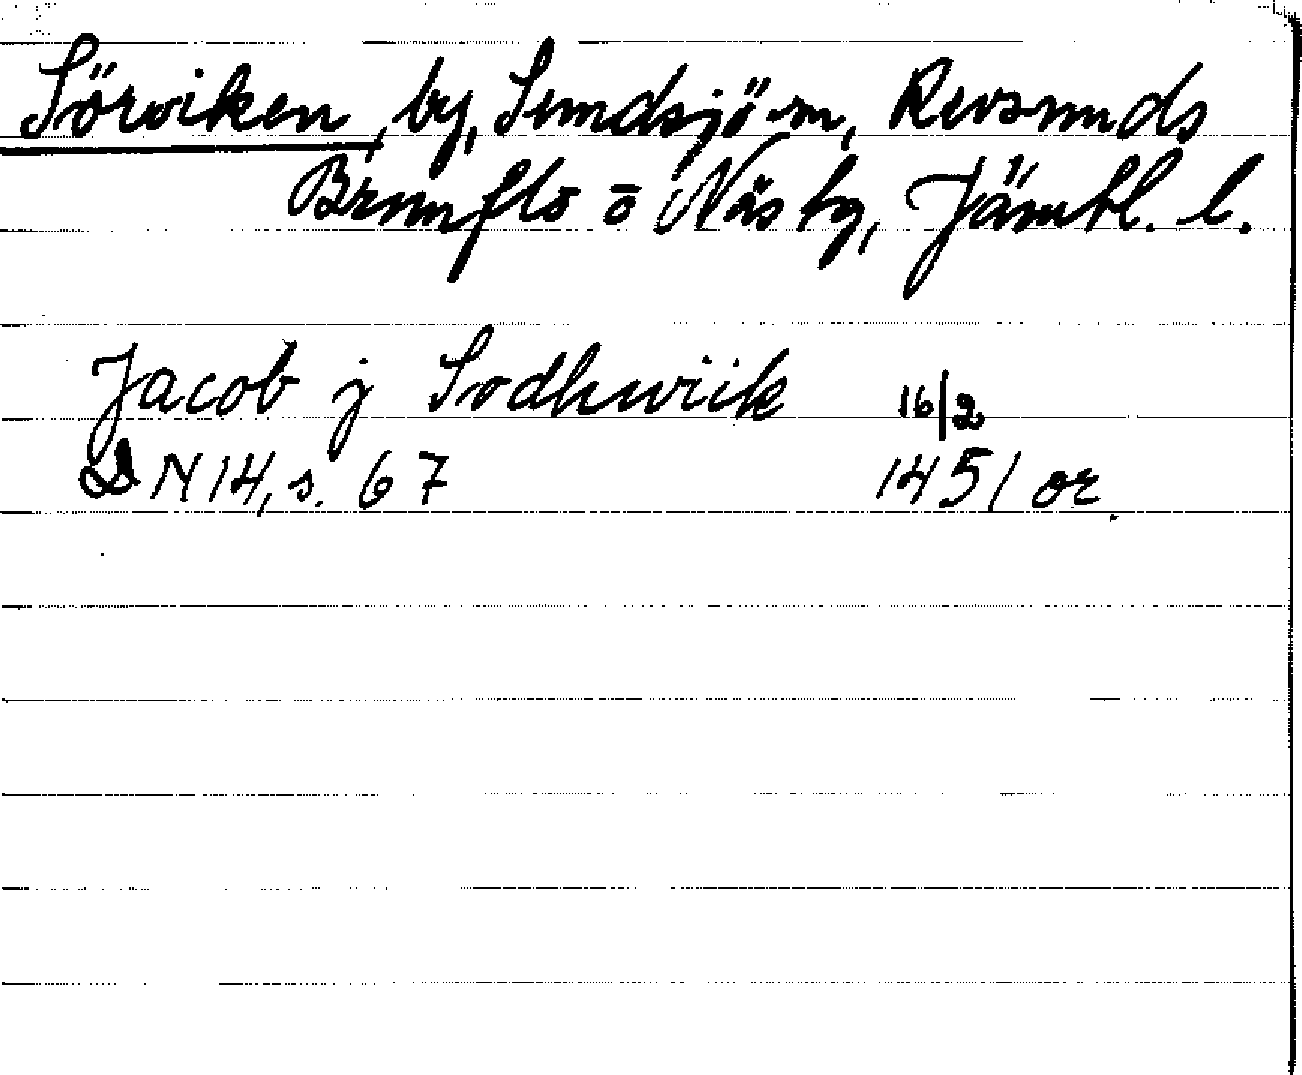 Sörviken, by, Sundsjö sn, Revsunds
Brunflo o Näs tg, Jämtl. l.
Jacob j Sodhwiik 16/2
DN 14, s. 67 1451 or.